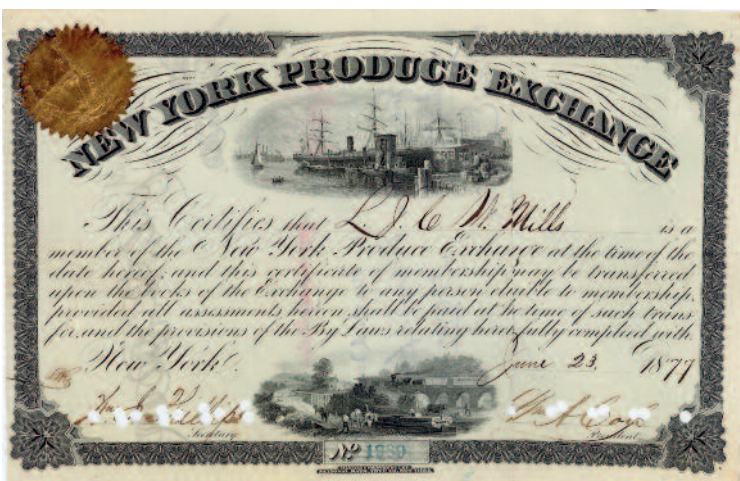 NEW YORK PRODUCE EXCHANGE
This Certifies that L. J. C. W. Mills is a
member of the New York Produce Exchange at the time of the
date hereof; and this certificate of membership may be transferred
upon the books of the Exchange to any person eligible to membership,
provided all assessments hereon shall be paid at the time of such trans
fer, and the provisions of the By Laws relating hereto fully complied with.
New York, June 23. 1877
Secretary. President.
Nº